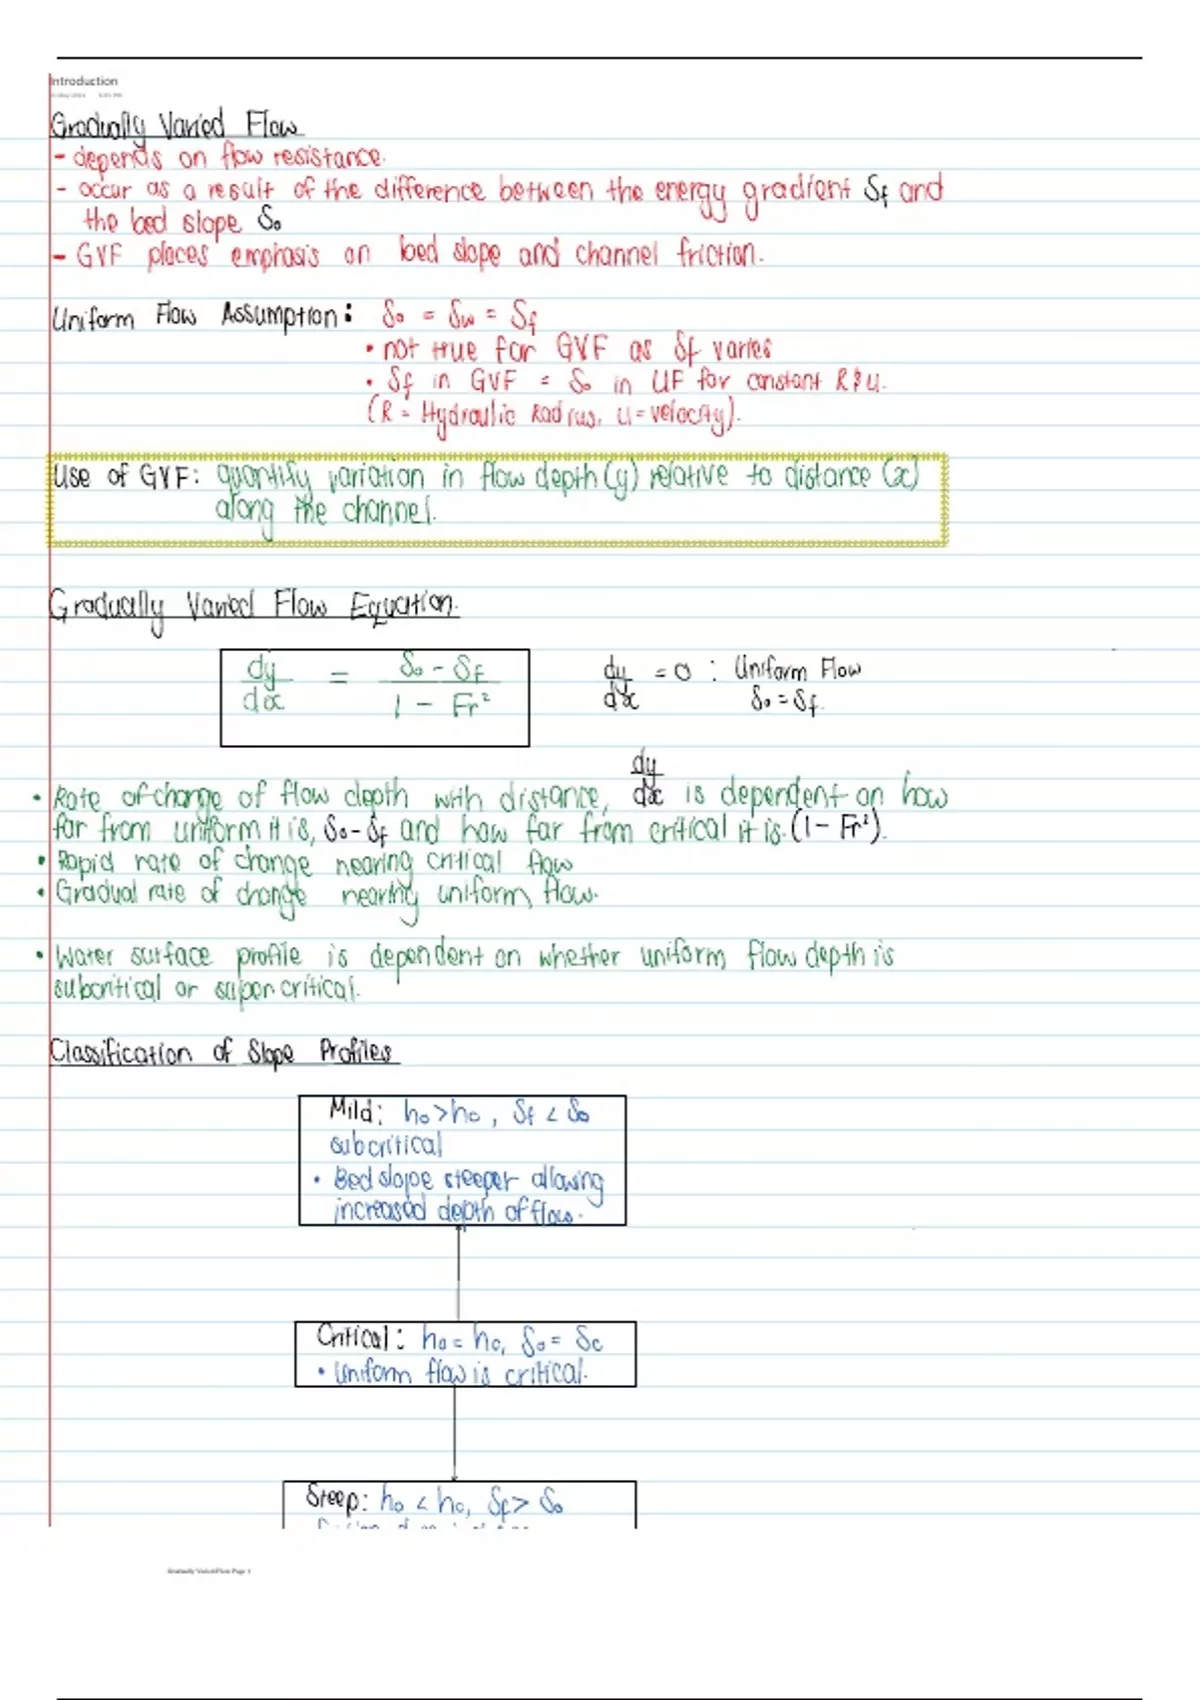 Introduction
Gradually Varied Flow
- depends on flow resistance.
- occur as a result of the difference between the energy gradient Sf and
the bed slope So
- GVF places emphasis on bed slope and channel friction.
Uniform Flow Assumption: So = Sw = Sf
• not true for GVF as Sf varies
• Sf in GVF = So in UF for constant R & u.
(R = Hydraulic Radius, u = velocity).
Use of GVF: quantify variation in flow depth (y) relative to distance (x)
along the channel.
Gradually Varied Flow Equation.
dy/dx = So - Sf / 1 - Fr² dy/dx = 0 : Uniform Flow
So = Sf.
• Rate of change of flow depth with distance, dy/dx is dependent on how
far from uniform it is, So - Sf and how far from critical it is (1 - Fr²).
• Rapid rate of change nearing critical flow
• Gradual rate of change nearing uniform flow.
• Water surface profile is dependent on whether uniform flow depth is
subcritical or supercritical.
Classification of Slope Profiles
Mild: ho > hc, Sf < So
subcritical
• Bed slope steeper allowing
increased depth of flow.
Critical: ho = hc, So = Sc
• Uniform flow is critical.
Steep: ho < hc, Sf > So
Gradually Varied Flow Page 1